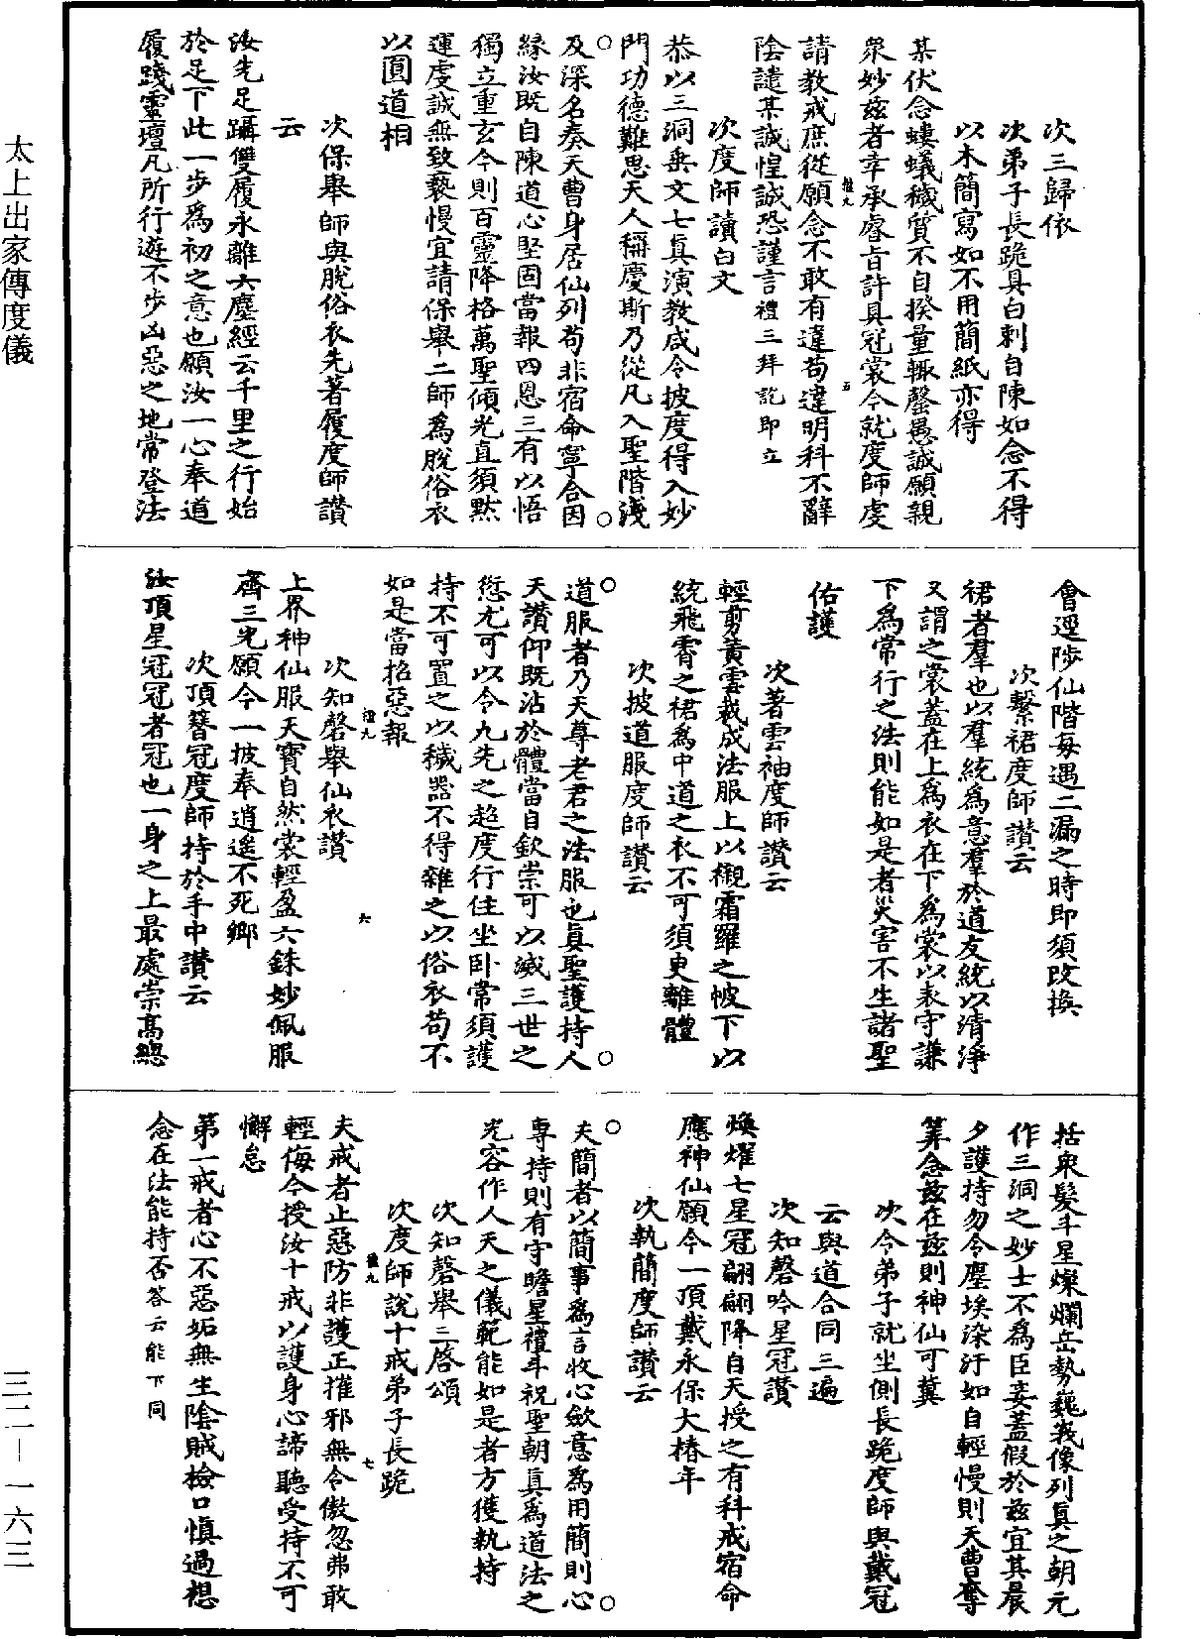 太上出家傳度儀
次三歸依
次弟子長跪具白剌自陳如念不得
以木簡寫如不用簡紙亦得
某伏念螻蟻穢質不自揆量輒罄愚誠願親
衆妙茲者幸承睿旨許具冠裳今就度師虔
請教戒庶從願念不敢有違苟違明科不辭
陰譴某誠惶誠恐謹言禮三拜訖即立
次度師讀白文
恭以三洞乘文七眞演教咸令披度得入妙
門功德難思天人稱慶斯乃從凡入聖階淺
及深名奏天曹身居仙列苟非宿命寧合因
緣汝既自陳道心堅固當報四恩三有以悟
獨立重玄今則百靈降格萬聖傾光直須黙
運虔誠無致褻慢宜請保舉二師爲脫俗衣
以圓道相
次保舉師與脫俗衣先著履度師讃
云
汝先足躡雙履永離六塵經云千里之行始
於足下此一步爲初之意也願汝一心奉道
履踐靈壇凡所行遊不步凶惡之地常登法
會逕陟仙階每遇二漏之時即須改換
次繫裙度師讃云
裙者羣也以羣統爲意羣於道友統以清淨
又謂之裳蓋在上爲衣在下爲裳以表守謙
下爲常行之法則能如是者災害不生諸聖
佑護
次著雲袖度師讃云
輕剪黃雲裁成法服上以襯霜羅之帔下以
統飛霄之裙爲中道之衣不可須臾離體
次披道服度師讃云
道服者乃天尊老君之法服也眞聖護持人
天讃仰既沾於體當自欽崇可以滅三世之
愆尤可以令九先之超度行住坐卧常須護
持不可置之以穢器不得雜之以俗衣苟不
如是當招惡報
次知磬舉仙衣讃
上界神仙服天寶自然裳輕盈六銖妙佩服
齊三光願今一披奉逍遙不死鄉
次頂簪冠度師持於手中讃云
汝頂星冠冠者冠也一身之上最處崇高緫
括衆髮斗星燦爛岳勢巍峩像列眞之朝元
作三洞之妙士不爲臣妾蓋假於茲宜其晨
夕護持勿令塵埃染汙如自輕慢則天曹奪
筭念茲在茲則神仙可冀
次令弟子就坐側長跪度師與戴冠
云與道合同三遍
次知磬吟星冠讃
煥燿七星冠翩翩降自天授之有科戒宿命
應神仙願今一頂戴永保大椿年
次執簡度師讃云
夫簡者以簡事爲言收心歛意爲用簡則心
專持則有守瞻星禮斗祝聖朝眞爲道法之
光容作人天之儀範能如是者方獲執持
次知磬舉三啓頌
次度師說十戒弟子長跪
夫戒者止惡防非護正摧邪無令傲忽弗敢
輕侮今授汝十戒以護身心諦聽受持不可
懈怠
第一戒者心不惡妬無生陰賊檢口愼過想
念在法能持否答云能下同
三二－一六三